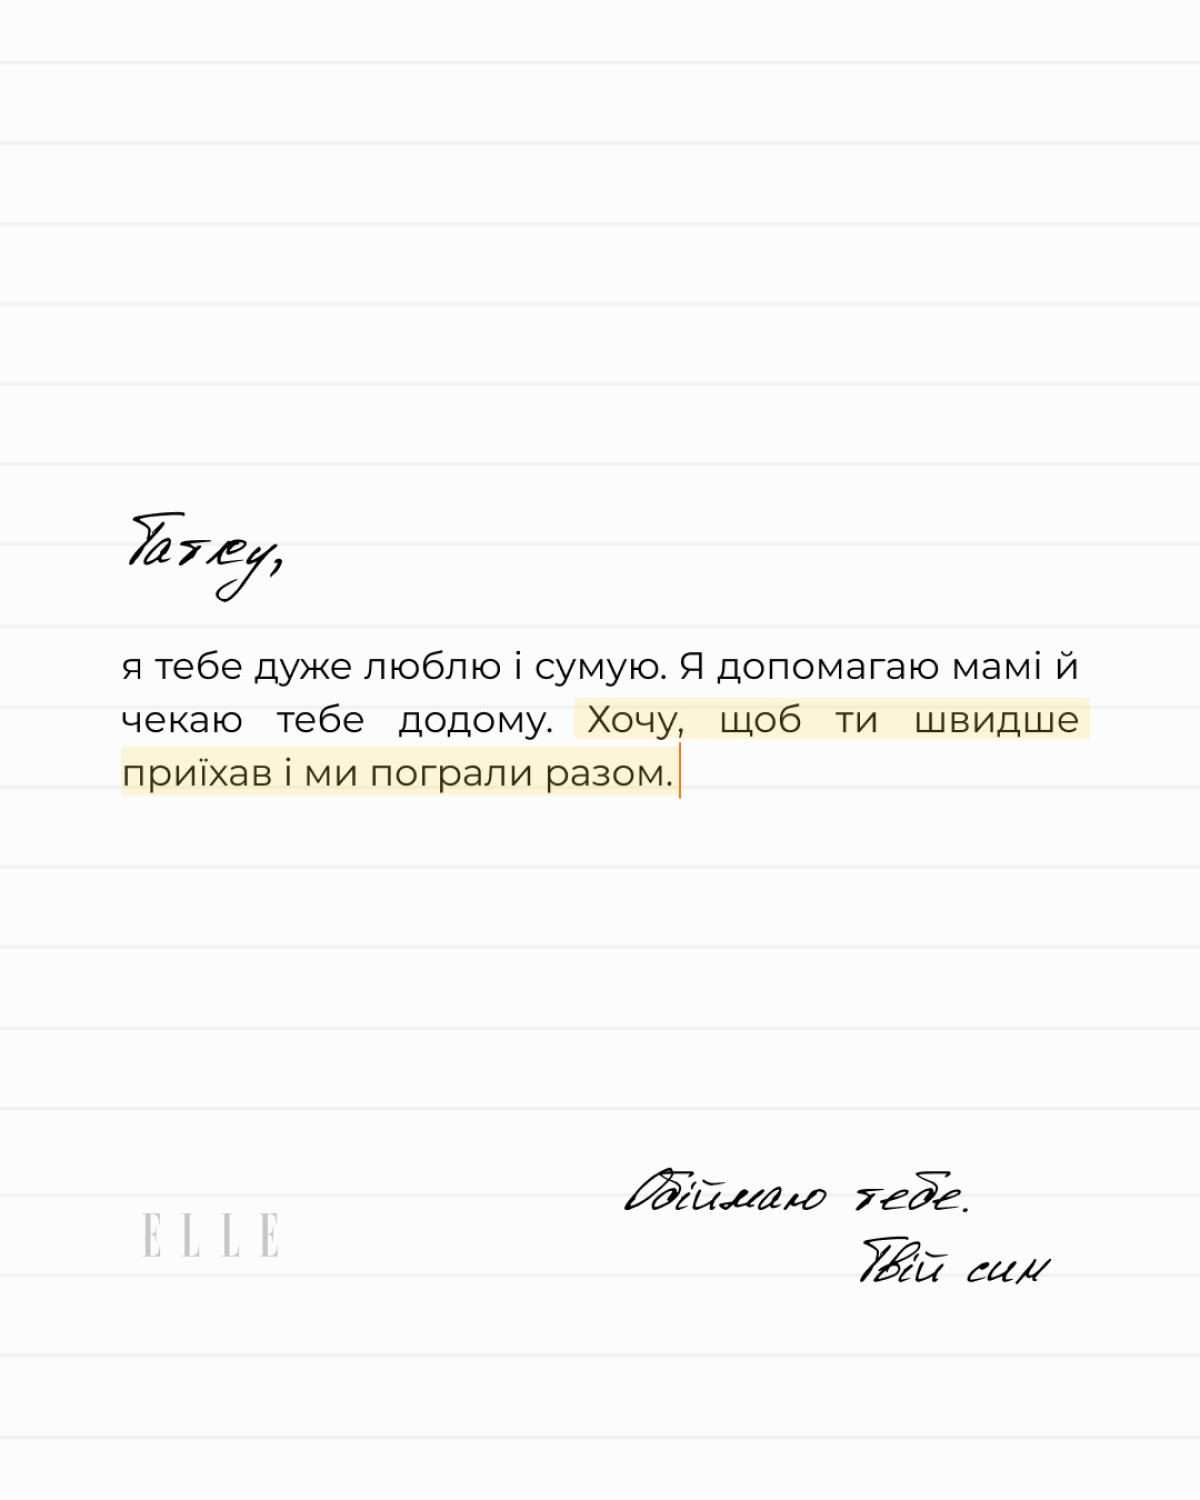 Татку,
я тебе дуже люблю і сумую. Я допомагаю мамі й
чекаю тебе додому. Хочу, щоб ти швидше
приїхав і ми пограли разом.
Обіймаю тебе.
ELLE
Твій син